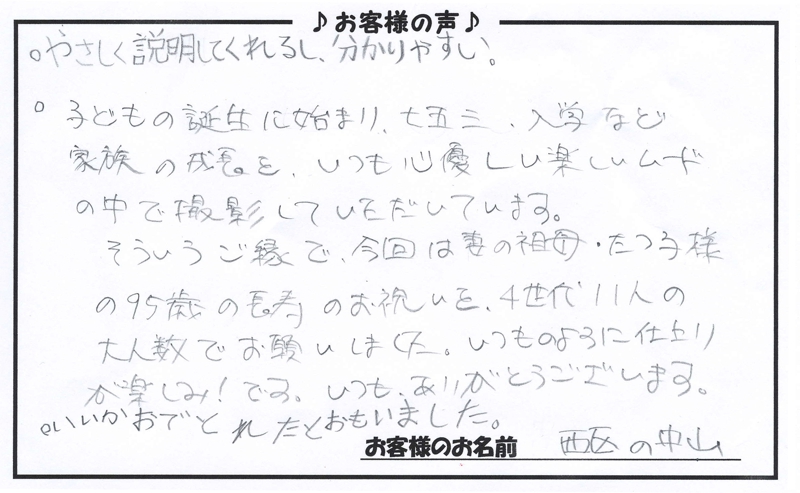 ♪お客様の声♪
○やさしく説明してくれるし、分かりやすい。
○子どもの誕生に始まり、七五三、入学など
家族の成長を、いつも心優しい楽しいムード
の中で撮影していただいています。
そういうご縁で、今回は妻の祖母・たつ子様
の95歳の長寿のお祝いを、4世代11人の
大人数でお願いしました。いつものように仕上り
が楽しみ!です。いつも、ありがとうございます。
○いいかおでとれたとおもいました。
お客様のお名前 西区の中山